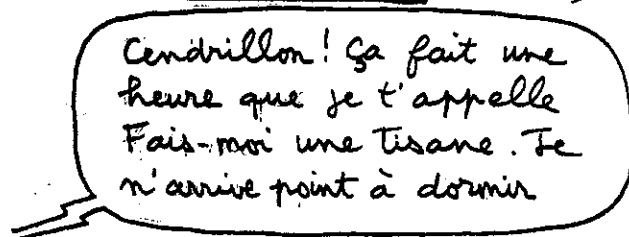 Cendrillon! Ça fait une
heure que je t'appelle
Fais-moi une tisane. Je
n'arrive point à dormir